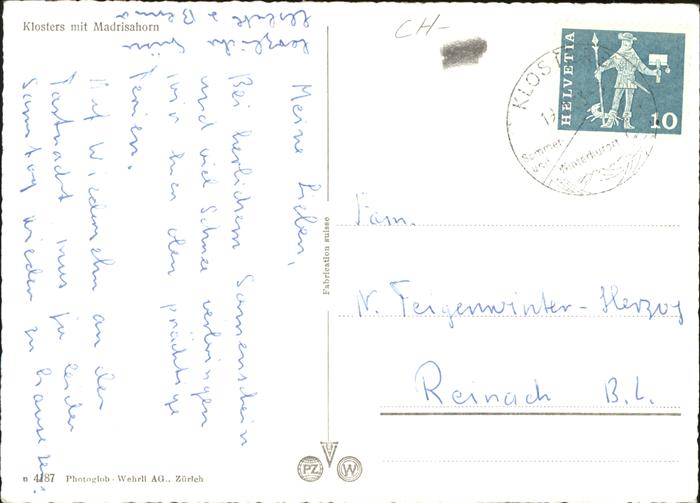 Klosters mit Madrisahorn
CH-
HELVETIA
10
KLOS
Sommer
und Winterkurort
Meine Lieben,
Bei herlichem Sonnenschein
und viel Schnee verbringen
wir hier den prächtige
Ferien.
Auf Wiedersehn an der
Fastnacht
Samstag wieder zu hause
herzliche Grüsse
Fam.
N. Feigenwinter-Herzog
Reinach B.L.
Fabrication suisse
n 4187 Photoglob-Wehrli AG., Zürich
PZ
W